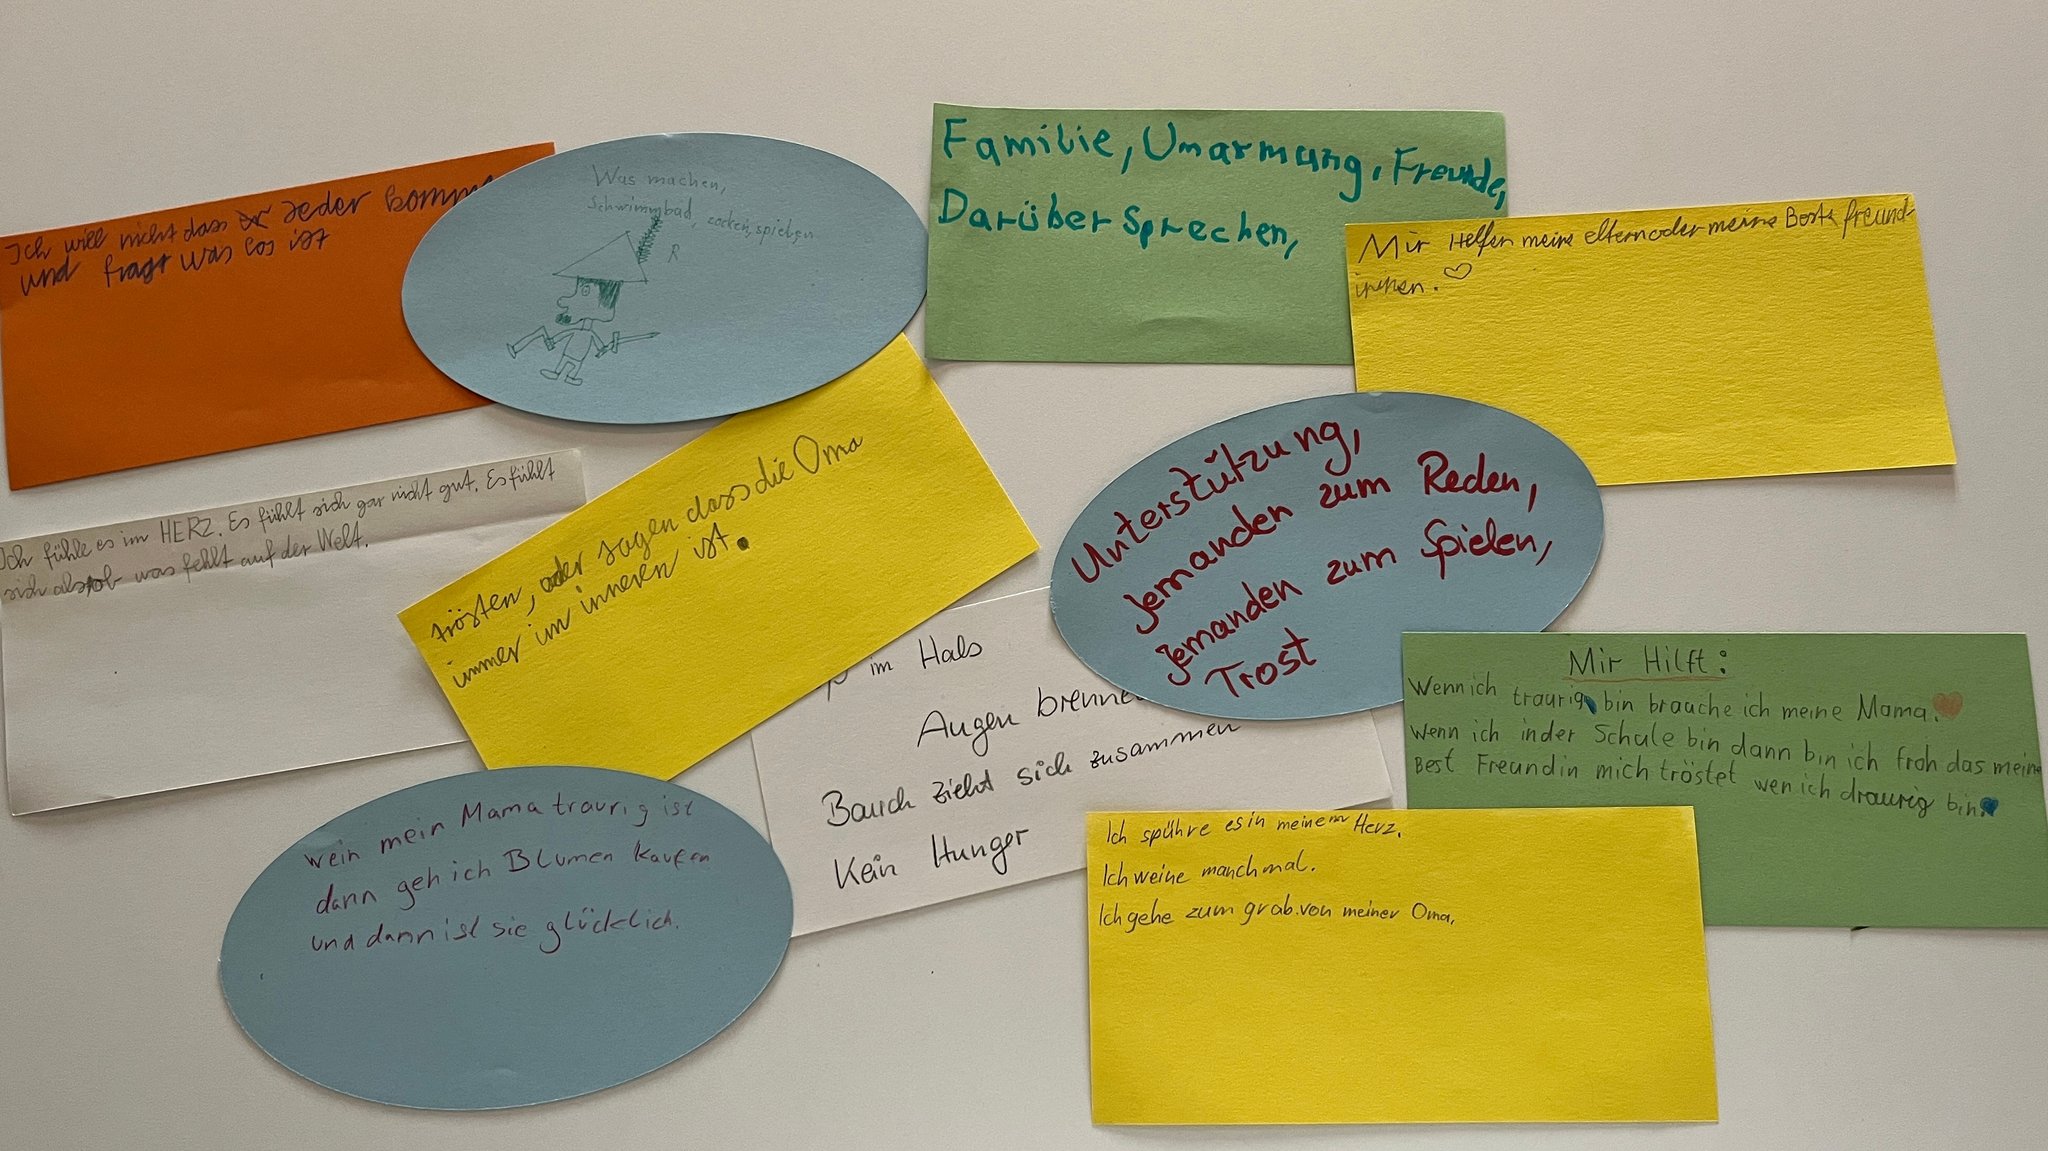 Ich will nicht dass er Jeder komm
und fragt was los ist
Was machen,
Schwimmbad, zocken, spielen
R
Familie, Umarmung, Freunde,
Darüber Sprechen,
Mir Helfen meine eltern oder meine Beste freund-
innen.
Ich fühle es im HERZ. Es fühlt sich gar nicht gut. Es fühlt
sich als ob was fehlt auf der Welt.
trösten, oder sagen dass die Oma
immer im inneren ist.
Unterstützung,
Jemanden zum Reden,
Jemanden zum Spielen,
Trost
im Hals
Augen brenne
Bauch zieht sich zusammen
Kein Hunger
Mir Hilft:
Wenn ich traurig bin brauche ich meine Mama.
Wenn ich in der Schule bin dann bin ich froh das meine
Best Freundin mich tröstet wen ich draurig bin.
wein mein Mama traurig ist
dann geh ich Blumen kaufen
und dann ist sie glücklich.
Ich spühre es in meinem Herz.
Ich weine manchmal.
Ich gehe zum grab von meiner Oma.